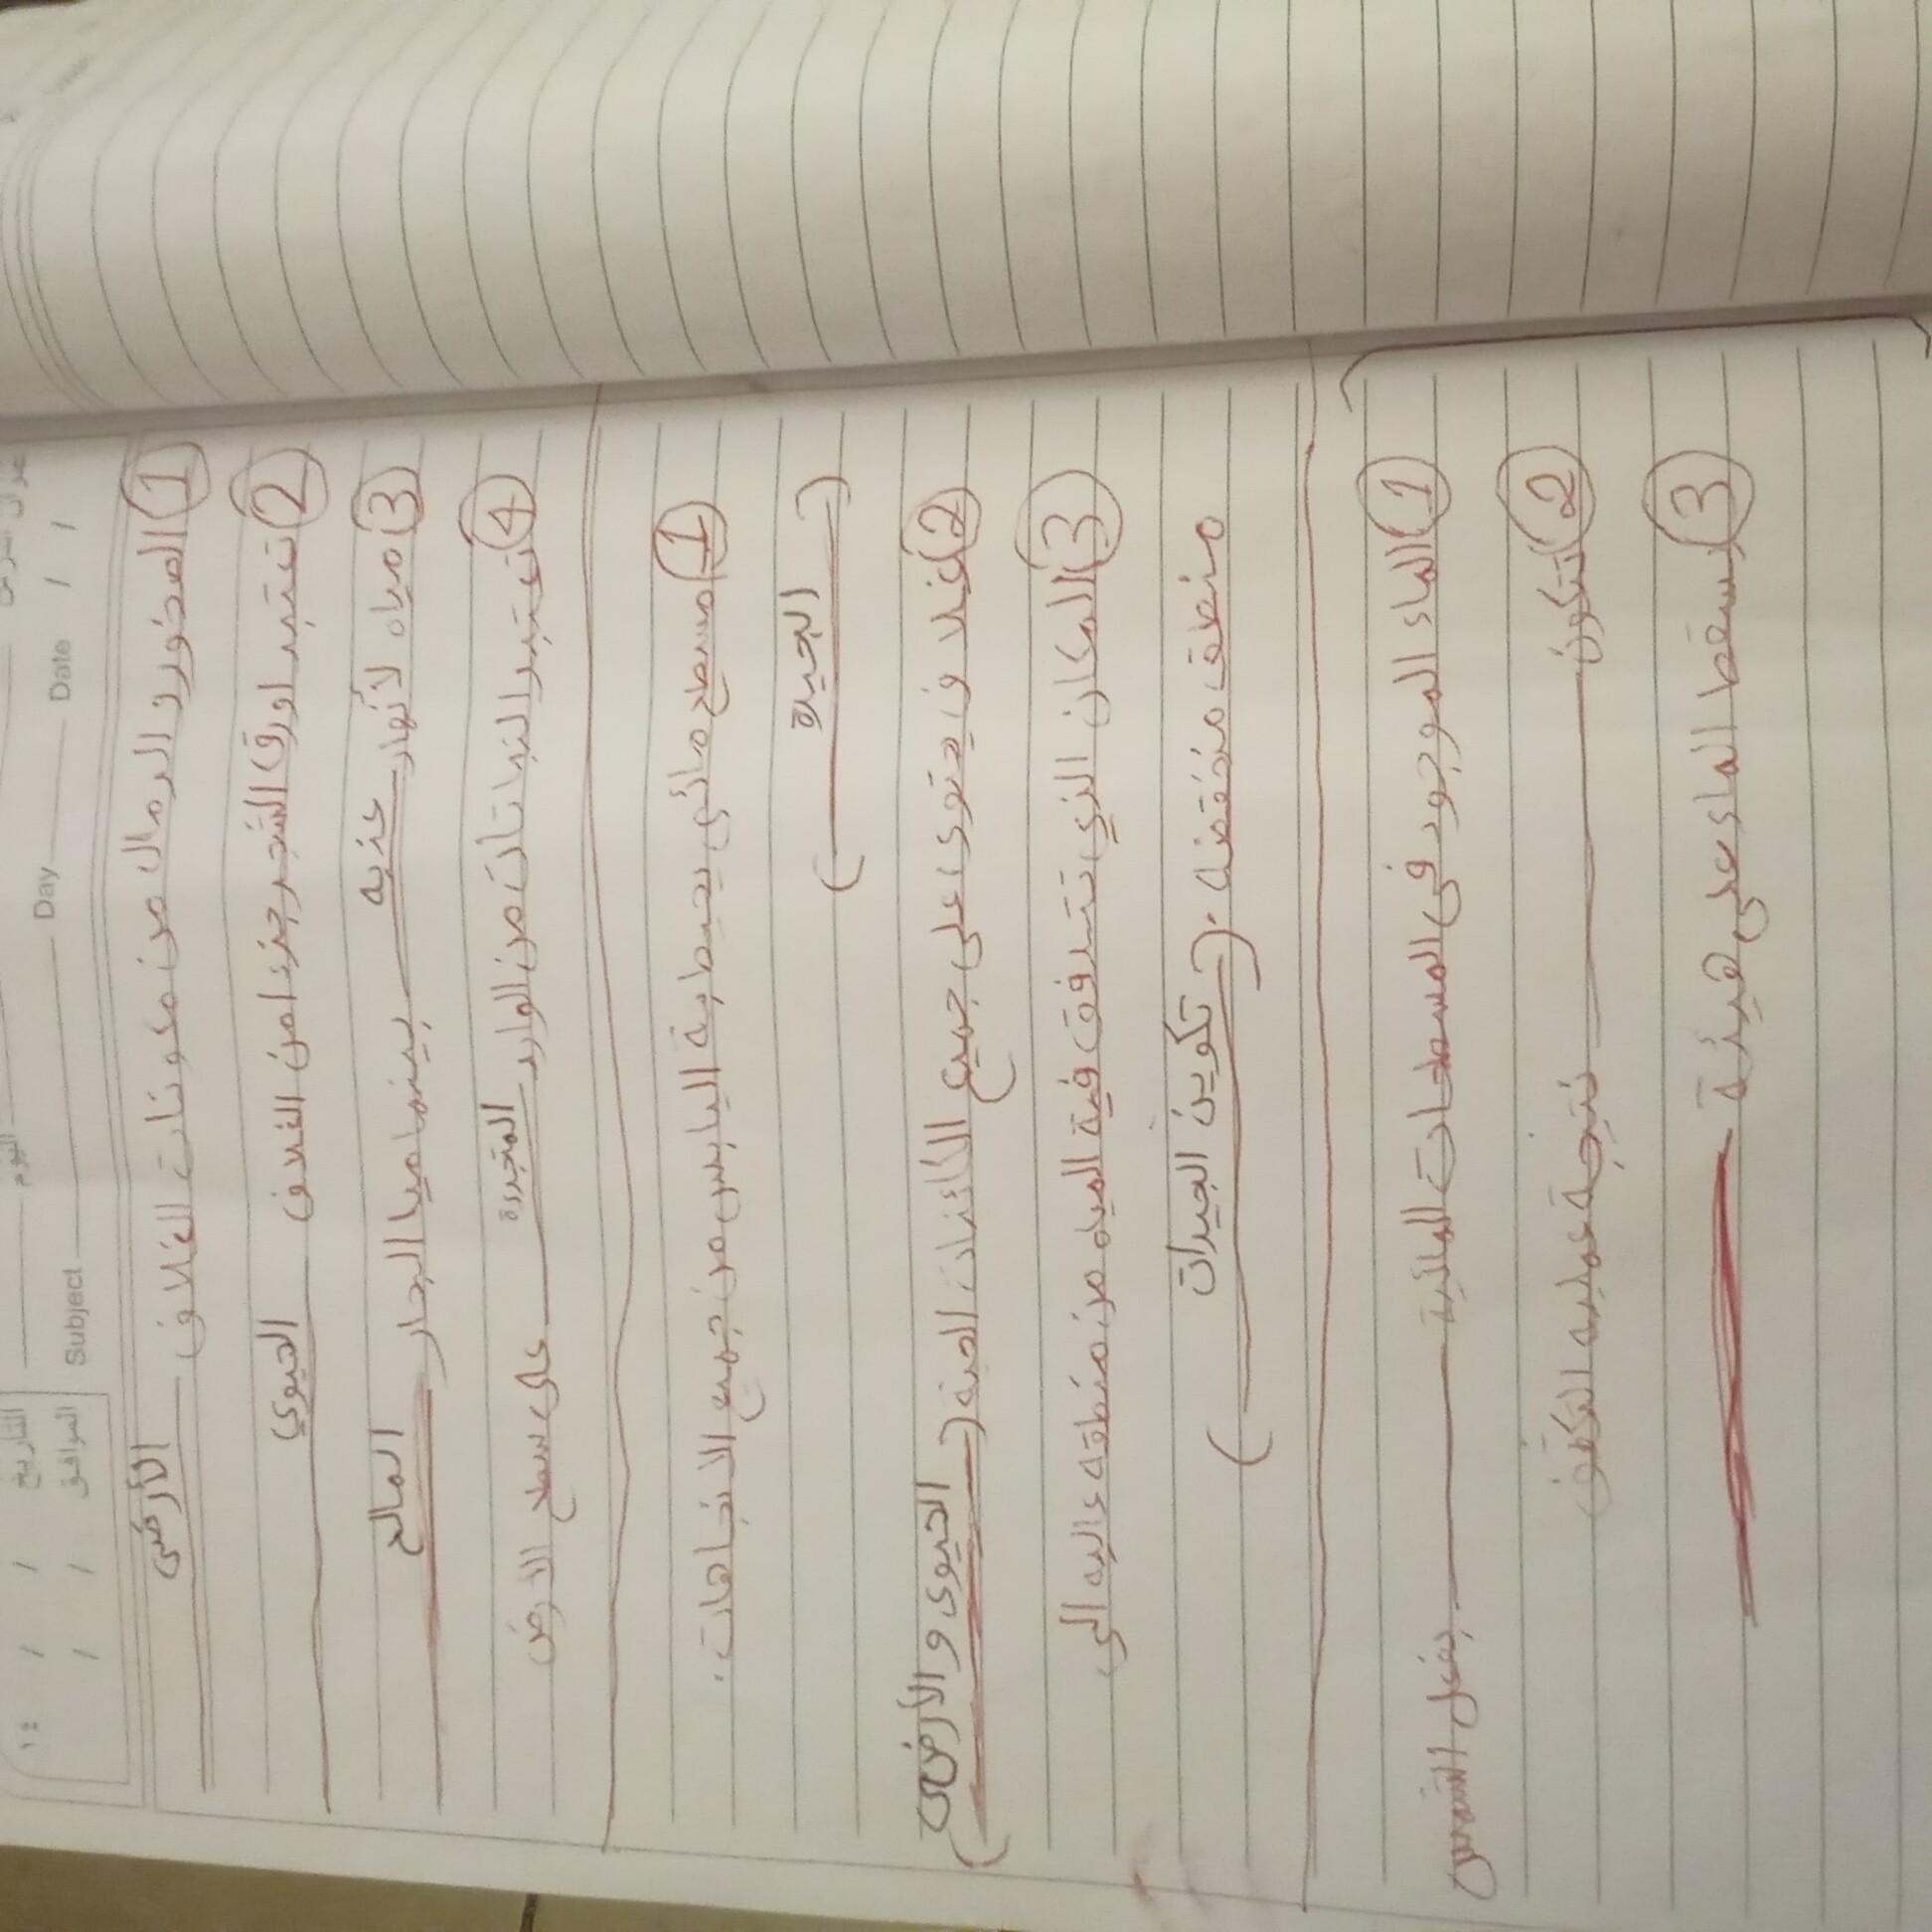 اليوم Day
Date / /
التاريخ / /
Subject
الموافق / /
① الصخور و الرمال من مكونات الغلاف الأرضى
② تعتبر اورق الشجر جزء امن الغلاف الحيوي
③ مياه لأنهار عذبه بينما ميا البحار المالح
④ تعتبر النباتات من الوارد المتجددة على سطح الارض
① مسطح مائى يحيط بة اليابس من جميع الاتجاهات.
( البحيرة )
② غلاف يحتوى على جميع الكائنات الحية ( الحيوى و الأرضى )
③ المكان الذي تتدفق فية المياه من منطقه عاليه الى
منطقه منخفضه. ( تكوين البحيرات )
① الماء الموجود فى المسطحات المائية بفعل الشمس
② تتكون نتيجة عمليه التكثف
③ يسقط الماء على هيئة